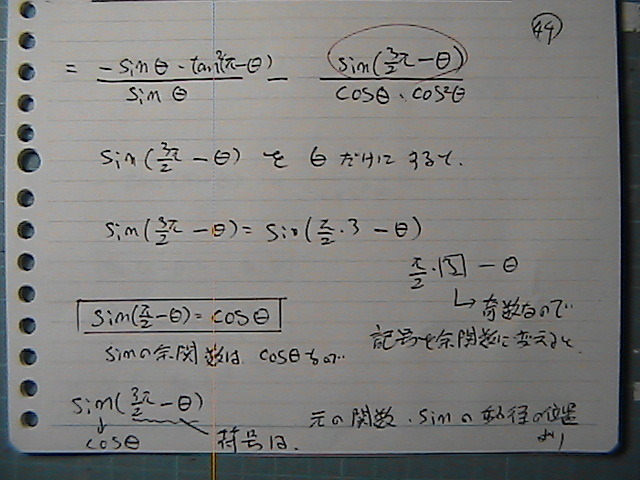 49
= \frac{-sinθ・tan²(π-θ)}{sinθ} - \frac{sin(\frac{3π}{2}-θ)}{cosθ・cos²θ}
sin(\frac{3π}{2}-θ) を θだけにすると、
sin(\frac{3π}{2}-θ) = sin(\frac{π}{2}・3-θ)
\frac{π}{2}・3-θ
↳ 奇数なので
記号を余関数に変えると、
sin(\frac{π}{2}-θ) = cosθ
sinの余関数は cosθなので
sin(\frac{3π}{2}-θ)
↓
cosθ 符号は、
元の関数、sinの動径の位置
より